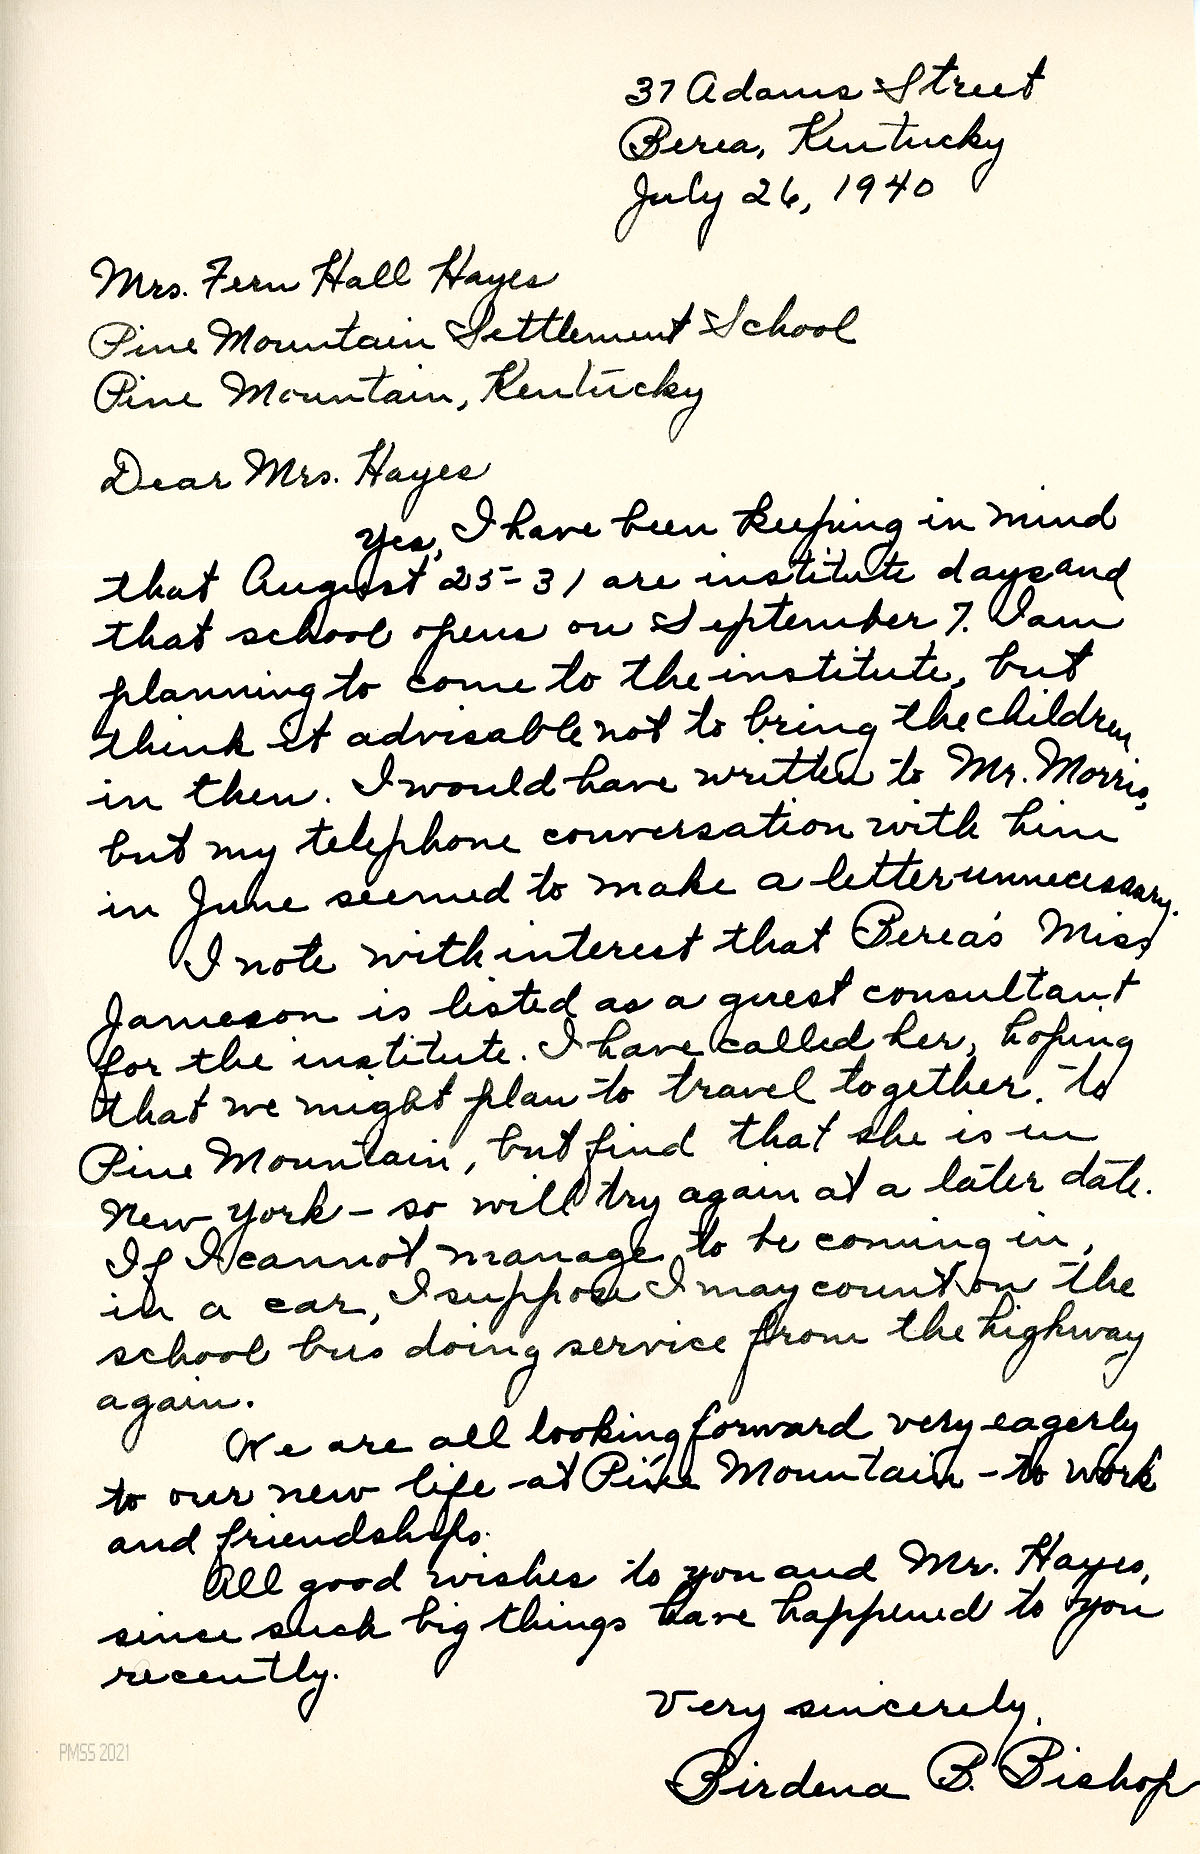 37 Adams Street
Berea, Kentucky
July 26, 1940
Mrs. Fern Hall Hayes
Pine Mountain Settlement School
Pine Mountain, Kentucky
Dear Mrs. Hayes
Yes, I have been keeping in mind
that August 25-31 are institute days and
that school opens on September 7. I am
planning to come to the institute, but
think it advisable not to bring the children
in then. I would have written to Mr. Morris,
but my telephone conversation with him
in June seemed to make a letter unnecessary.
I note with interest that Berea's Miss
Jameson is listed as a guest consultant
for the institute. I have called her, hoping
that we might plan to travel together. to
Pine Mountain, but find that she is in
New York - so will try again at a later date.
If I cannot manage to be coming in,
in a car, I suppose I may count on the
school bus doing service from the highway
again.
We are all looking forward very eagerly
to our new life at Pine Mountain - to work
and friendships.
All good wishes to you and Mr. Hayes,
since such big things have happened to you
recently.
Very sincerely,
Birdena B. Bishop
PMSS 2021